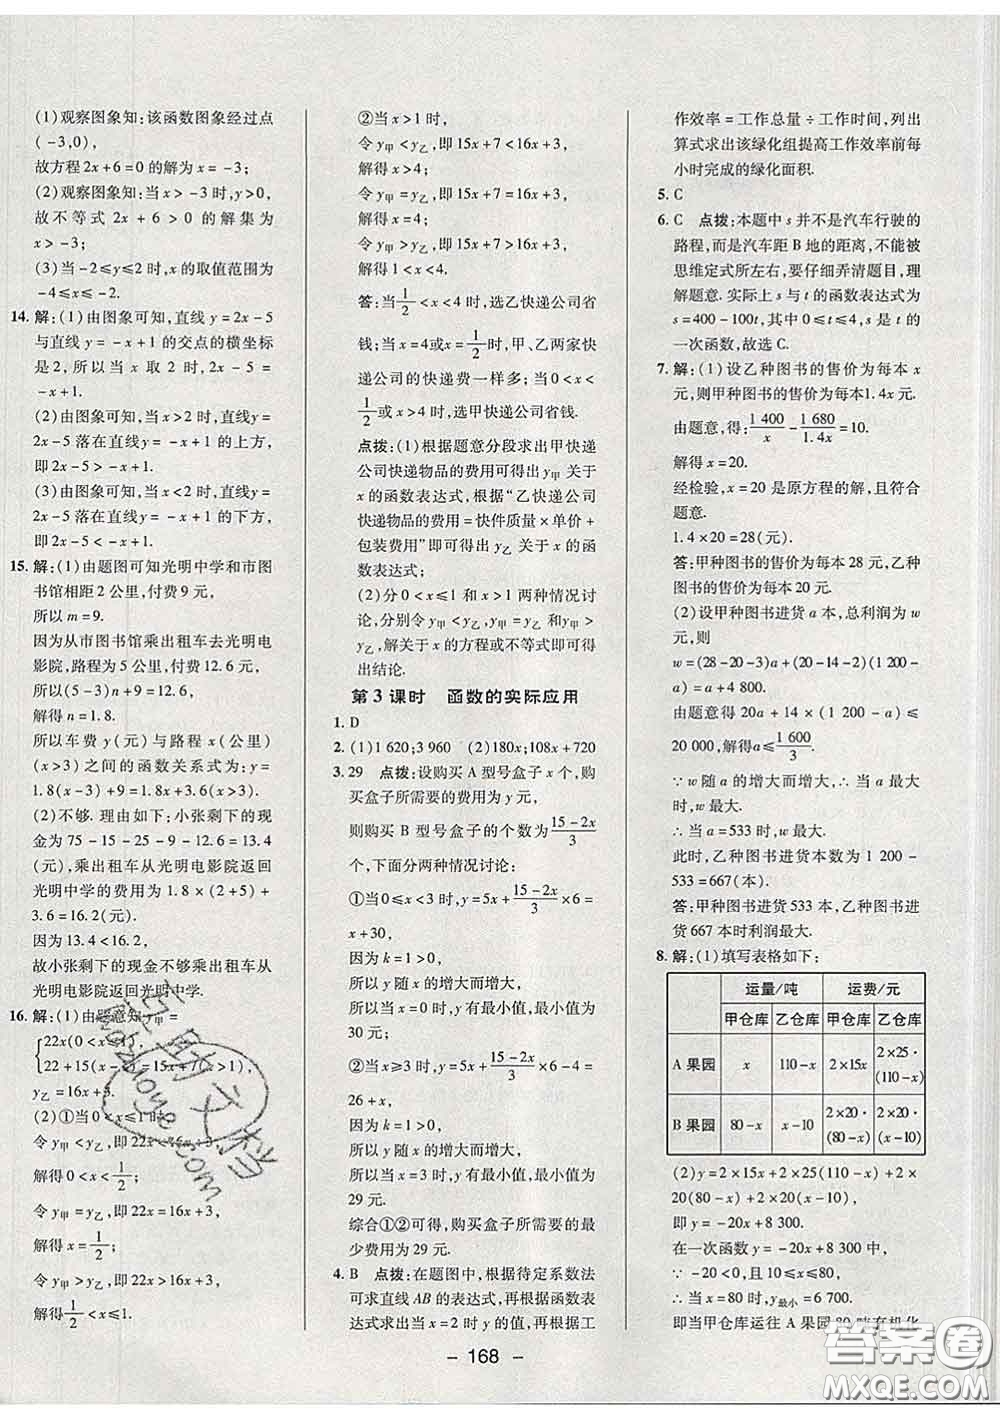 (1)观察图象知:该函数图象经过点
(-3,0),
故方程 2x+6=0 的解为 x=-3;
(2)观察图象知:当 x>-3 时,y>0,
故不等式 2x+6>0 的解集为
x>-3;
(3)当 -2≤y≤2 时,x 的取值范围为
-4≤x≤-2.
14. 解:(1)由图象可知,直线 y=2x-5
与直线 y=-x+1 的交点的横坐标
是 2,所以当 x 取 2 时,2x-5=
-x+1.
(2)由图象可知,当 x>2 时,直线 y=
2x-5 落在直线 y=-x+1 的上方,
即 2x-5>-x+1.
(3)由图象可知,当 x<2 时,直线 y=
2x-5 落在直线 y=-x+1 的下方,
即 2x-5<-x+1.
15. 解:(1)由题图可知光明中学和市图
书馆相距 2 公里,付费 9 元,
所以 m=9.
因为从市图书馆乘出租车去光明电
影院,路程为 5 公里,付费 12.6 元,
所以(5-3)n+9=12.6,
解得 n=1.8.
所以车费 y(元)与路程 x(公里)
(x>3)之间的函数关系式为:y=
1.8(x-3)+9=1.8x+3.6(x>3).
(2)不够. 理由如下:小张剩下的现
金为 75-15-25-9-12.6=13.4
(元),乘出租车从光明电影院返回
光明中学的费用为 1.8×(2+5)+
3.6=16.2(元).
因为 13.4<16.2,
故小张剩下的现金不够乘出租车从
光明电影院返回光明中学.
16. 解:(1)由题意知 y甲=
{22x(0<x≤1),
22+15(x-1)=15x+7(x>1),
y乙=16x+3.
(2)①当 0<x≤1 时,
令 y甲<y乙,即 22x<16x+3,
解得 0<x<1/2;
令 y甲=y乙,即 22x=16x+3,
解得 x=1/2;
令 y甲>y乙,即 22x>16x+3,
解得 1/2<x≤1.
②当 x>1 时,
令 y甲<y乙,即 15x+7<16x+3,
解得 x>4;
令 y甲=y乙,即 15x+7=16x+3,
解得 x=4;
令 y甲>y乙,即 15x+7>16x+3,
解得 1<x<4.
答:当 1/2<x<4 时,选乙快递公司省
钱;当 x=4 或 x=1/2 时,甲、乙两家快
递公司的快递费一样多;当 0<x<
1/2 或 x>4 时,选甲快递公司省钱.
点拨:(1)根据题意分段求出甲快递
公司快递物品的费用可得出 y甲 关于
x 的函数表达式,根据“乙快递公司
快递物品的费用=快件质量×单价+
包装费用”可得出 y乙 关于 x 的函
数表达式;
(2)分 0<x≤1 和 x>1 两种情况讨
论,分别令 y甲<y乙,y甲=y乙 和 y甲>
y乙,解关于 x 的方程或不等式即可得
出结论.
第 3 课时 函数的实际应用
1. D
2. (1)1 620;3 960 (2)180x;108x+720
3. 29 点拨:设购买 A 型号盒子 x 个,购
买盒子所需要的费用为 y 元,
则购买 B 型号盒子的个数为 (15-2x)/3
个,下面分两种情况讨论:
①当 0≤x<3 时,y=5x+(15-2x)/3×6=
x+30,
因为 k=1>0,
所以 y 随 x 的增大而增大,
所以当 x=0 时,y 有最小值,最小值为
30 元;
②当 x≥3 时,y=5x+(15-2x)/3×6-4=
26+x,
因为 k=1>0,
所以 y 随 x 的增大而增大,
所以当 x=3 时,y 有最小值,最小值为
29 元.
综合①②可得,购买盒子所需要的最
少费用为 29 元.
4. B 点拨:在题图中,根据待定系数法
可求直线 AB 的表达式,再根据函数表
达式求出当 x=2 时 y 的值,再根据工
作效率=工作总量÷工作时间,列出
算式求出该绿化组提高工作效率前每
小时完成的绿化面积.
5. C
6. C 点拨:本题中 s 并不是汽车行驶的
路程,而是汽车距 B 地的距离,不能被
思维定式所左右,要仔细弄清题目,理
解题意. 实际上 s 与 t 的函数表达式为
s=400-100t,其中 0≤t≤4,s 是 t 的
一次函数,故选 C.
7. 解:(1)设乙种图书的售价为每本 x
元,则甲种图书的售价为每本 1.4x 元.
由题意,得:1 400/x-1 680/1.4x=10.
解得 x=20.
经检验,x=20 是原方程的解,且符合
题意.
1.4×20=28(元).
答:甲种图书的售价为每本 28 元,乙种
图书的售价为每本 20 元.
(2)设甲种图书进货 a 本,总利润为 w
元,则
w=(28-20-3)a+(20-14-2)(1 200-
a)=a+4 800.
由题意得 20a+14×(1 200-a)≤
20 000,解得 a≤1 600/3.
∵w 随 a 的增大而增大,∴当 a 最大
时,w 最大.
∴当 a=533 时,w 最大.
此时,乙种图书进货本数为 1 200-
533=667(本).
答:甲种图书进货 533 本,乙种图书进
货 667 本时利润最大.
8. 解:(1)填写表格如下:
运量/吨 运费/元
甲仓库 乙仓库 甲仓库 乙仓库
A 果园 x 110-x 2×15x 2×25·(110-x)
B 果园 80-x x-10 2×20·(80-x) 2×20·(x-10)
(2)y=2×15x+2×25(110-x)+2×
20(80-x)+2×20(x-10),
即 y=-20x+8 300.
在一次函数 y=-20x+8 300 中,
∵-20<0,且 10≤x≤80,
∴当 x=80 时,y最小=6 700.
即当甲仓库运往 A 果园 80 吨有机化
- 168 -
答案圈
MXQE.COM